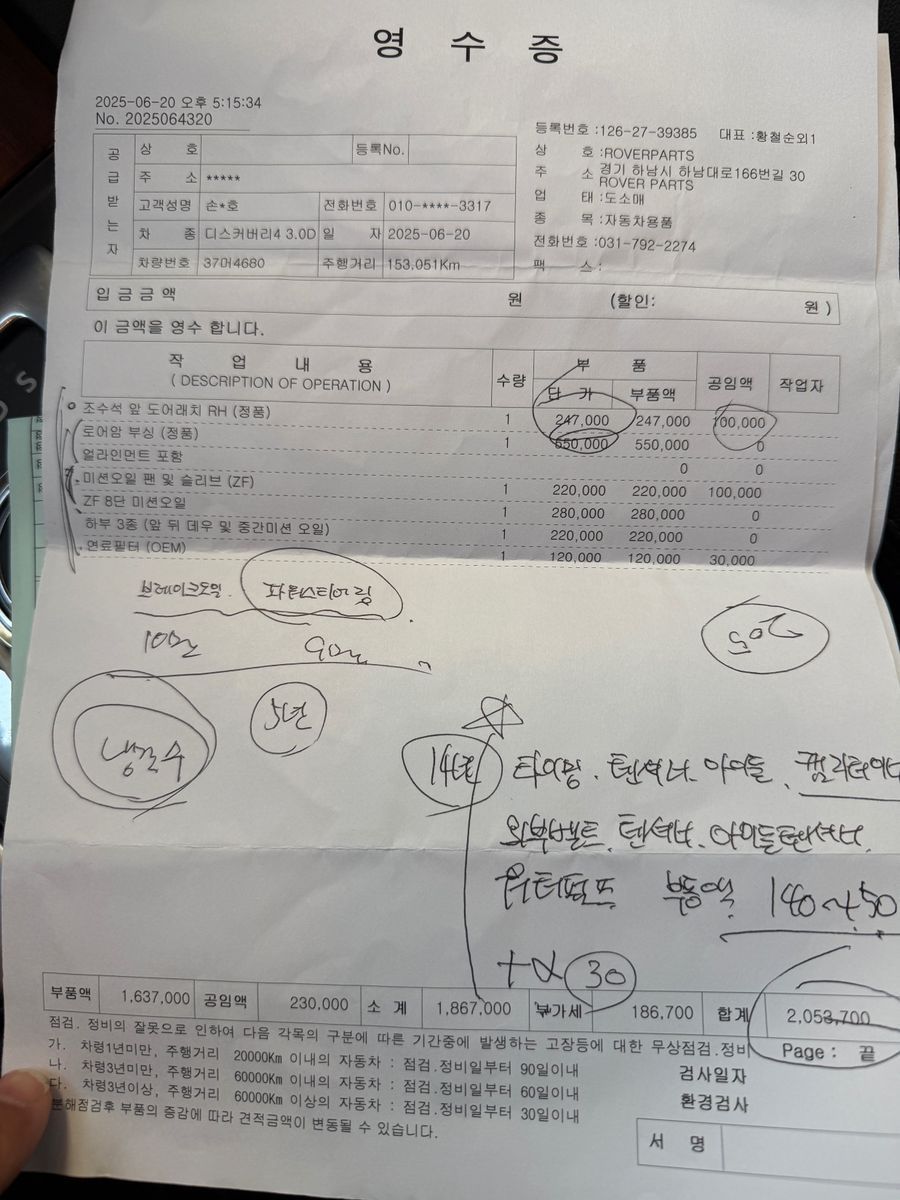 영 수 증
2025-06-20 오후 5:15:34
No. 2025064320
등록번호 :126-27-39385 대표 :황철순외1
상 호 :ROVERPARTS
주 소 경기 하남시 하남대로166번길 30
ROVER PARTS
업 태 :도소매
종 목 :자동차용품
전화번호 :031-792-2274
팩 스 :
공급받는자
상 호 등록No.
주 소 *****
고객성명 손*호 전화번호 010-****-3317
차 종 디스커버리4 3.0D 일 자 2025-06-20
차량번호 37머4680 주행거리 153,051Km
입 금 금 액 원 (할인: 원 )
이 금액을 영수 합니다.
작 업 내 용 수량 부 품 공임액 작업자
( DESCRIPTION OF OPERATION ) 단 가 부품액
조수석 앞 도어래치 RH (정품) 1 247,000 247,000 100,000
로어암 부싱 (정품) 1 550,000 550,000 0
얼라인먼트 포함 0 0
미션오일 팬 및 슬리브 (ZF) 1 220,000 220,000 100,000
ZF 8단 미션오일 1 280,000 280,000 0
하부 3종 (앞 뒤 데우 및 중간미션 오일) 1 220,000 220,000 0
연료필터 (OEM) 1 120,000 120,000 30,000
브레이크오일. 파워스티어링
10만 9만
205
냉각수 5년
14년 타이밍. 텐셔너. 아이들.
외부벨트. 텐셔너. 아이들텐셔너.
워터펌프 부동액 140~150
+α 30
부품액 1,637,000 공임액 230,000 소 계 1,867,000 부가세 186,700 합계 2,053,700
점검. 정비의 잘못으로 인하여 다음 각목의 구분에 따른 기간중에 발생하는 고장등에 대한 무상점검.정비
Page : 끝
가. 차령1년미만, 주행거리 20000Km 이내의 자동차 : 점검.정비일부터 90일이내
나. 차령3년미만, 주행거리 60000Km 이내의 자동차 : 점검.정비일부터 60일이내
다. 차령3년이상, 주행거리 60000Km 이상의 자동차 : 점검.정비일부터 30일이내
분해점검후 부품의 증감에 따라 견적금액이 변동될 수 있습니다.
검사일자
환경검사
서 명